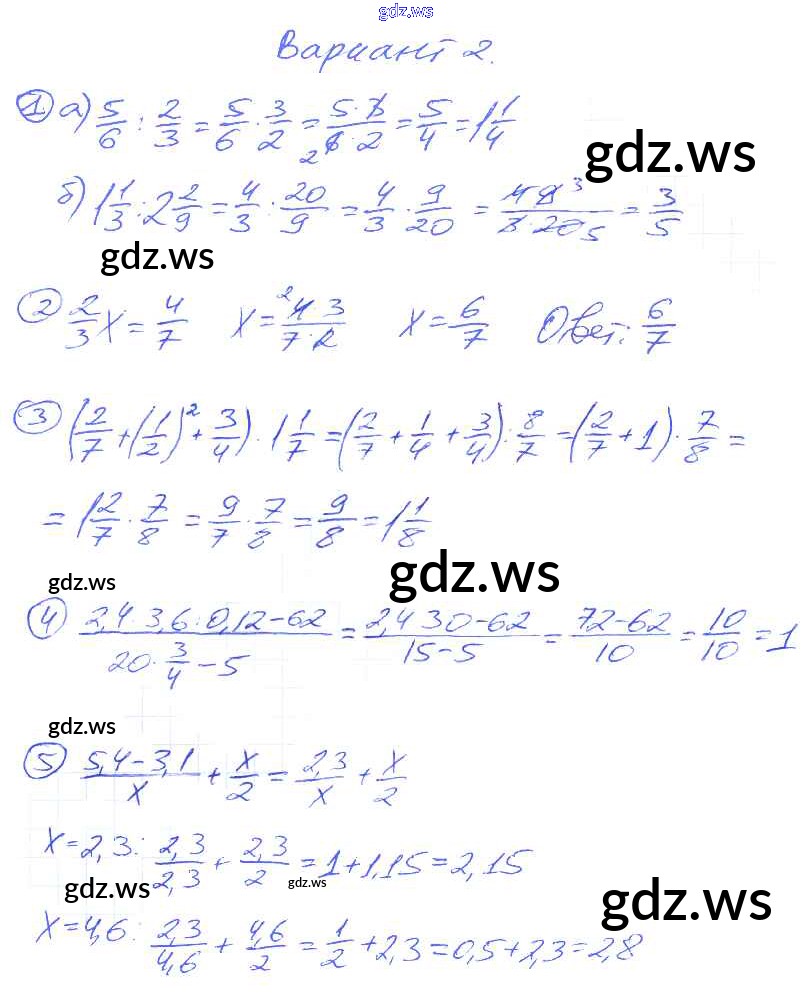 gdz.ws
Вариант 2.
1 а) 5/6 : 2/3 = 5/6 · 3/2 = 5·3/6·2 2 = 5/4 = 1 1/4
gdz.ws
б) 1 1/3 : 2 2/9 = 4/3 : 20/9 = 4/3 · 9/20 = 4·9 3/3·20 5 = 3/5
gdz.ws
2 2/3 x = 4/7 x = 2 4·3/7·2 x = 6/7 Ответ: 6/7
3 (2/7 + (1/2)² + 3/4) · 1 1/7 = (2/7 + 1/4 + 3/4) : 8/7 = (2/7 + 1) · 7/8 =
= 1 2/7 · 7/8 = 9/7 · 7/8 = 9/8 = 1 1/8
gdz.ws gdz.ws
4 2,4·3,6:0,12-62/20·3/4-5 = 2,4 30-62/15-5 = 72-62/10 = 10/10 = 1
gdz.ws
5 5,4-3,1/x + x/2 = 2,3/x + x/2
x=2,3: 2,3/2,3 + 2,3/2 = 1+1,15=2,15
gdz.ws gdz.ws gdz.ws
x=4,6: 2,3/4,6 + 4,6/2 = 1/2 + 2,3=0,5+2,3=2,8